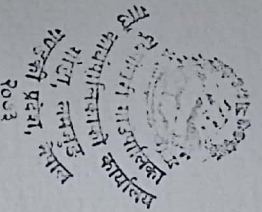 गाउँपालिका
गाउँ कार्यपालिकाको कार्यालय
लमजुङ
गण्डकी प्रदेश, नेपाल
२०७३